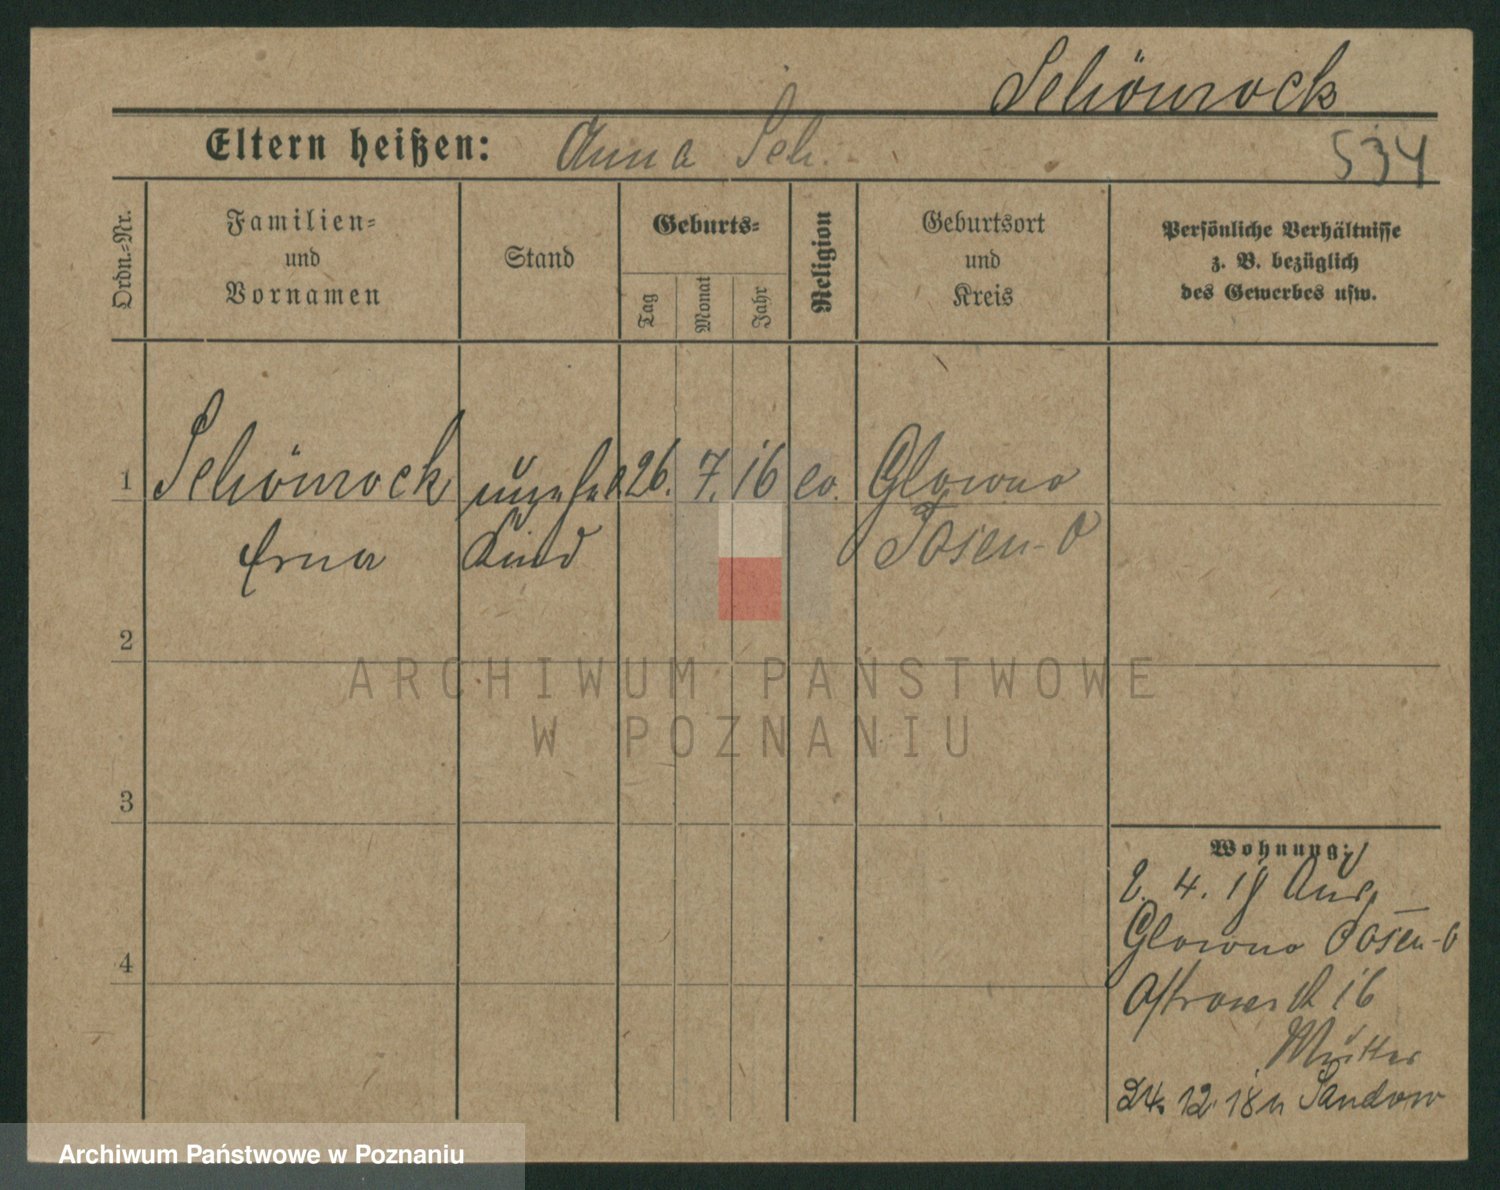 Schönrock
Eltern heißen: Anna Sch.
534
Ordn.-Nr.
Familien=
und
Vornamen
Stand
Geburts=
Tag
Monat
Jahr
Religion
Geburtsort
und
Kreis
Persönliche Verhältnisse
z. B. bezüglich
des Gewerbes usw.
1 Schönrock unehel 26. 7. 16 ev. Glowno
Erna Kind Posen-O
2
ARCHIWUM PAŃSTWOWE
W POZNANIU
3
Wohnung:
2. 4. 18
Glowno Posen-O
4
16
Mutter
24. 12. 18 n Sandow
Archiwum Państwowe w Poznaniu